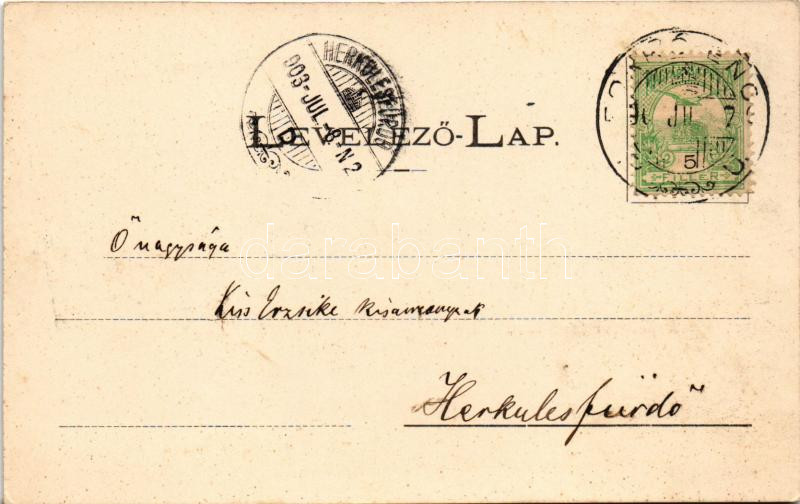 HERKULESFÜRDŐ
903-JUL.-8-N2
D
LEVELEZŐ-LAP.
JUL 7
5
FILLER
darabanth
Ő nagysága
Kiss Erzsike kisasszonynak
Herkulesfürdő